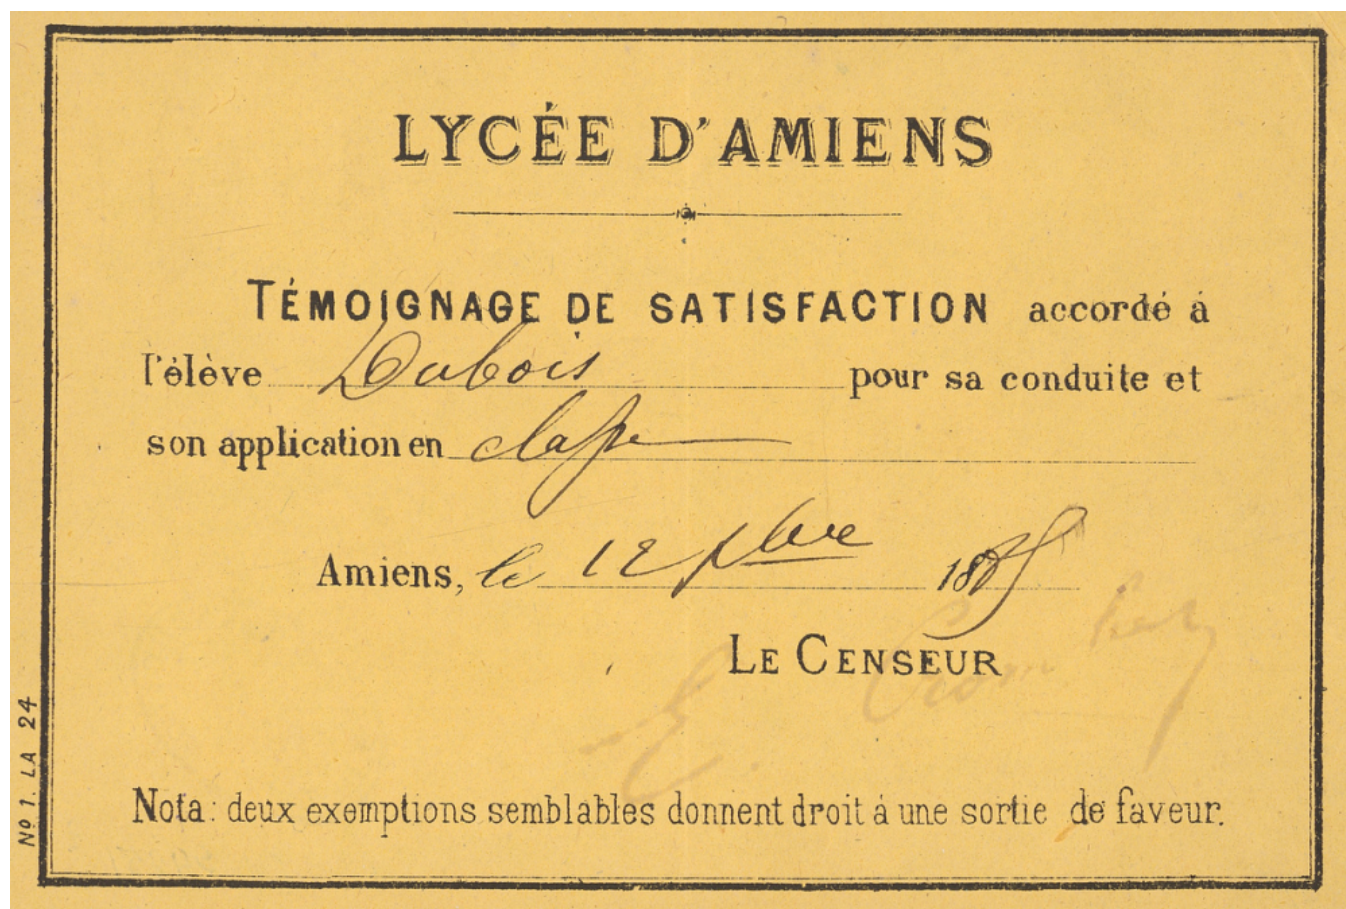 LYCÉE D'AMIENS
TÉMOIGNAGE DE SATISFACTION accordé à
l'élève Dubois pour sa conduite et
son application en classe
Amiens, le 12 xbre 188
LE CENSEUR
E.
Nota : deux exemptions semblables donnent droit à une sortie de faveur.
Nº 1. LA 24